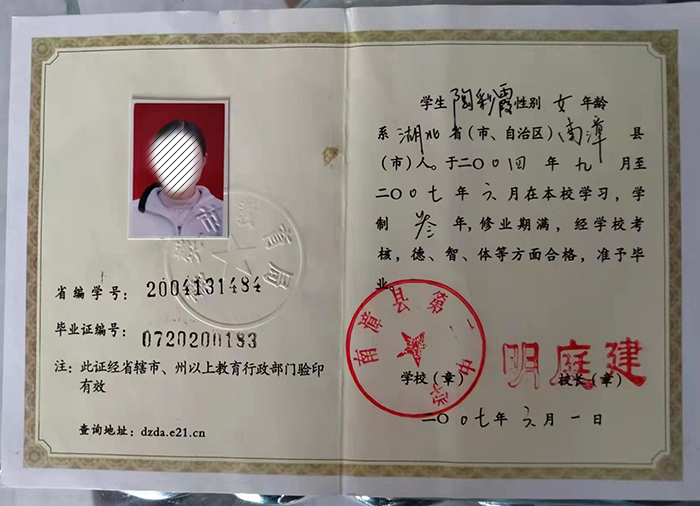 省编学号：2004131484
毕业证编号：0720200183
注：此证经省辖市、州以上教育行政部门验印
有效
查询地址：dzda.e21.cn
学生 陶彩霞 性别 女 年龄
系 湖北 省（市、自治区）南漳 县
（市）人。于二〇〇四 年 九 月至
二〇〇七 年 六 月在本校学习，学
制 叁 年，修业期满，经学校考
核，德、智、体等方面合格，准予毕
业。
南漳县第一中学
学校（章）
校长（章）
明庭建
二〇〇七年 六 月 一 日
教育局